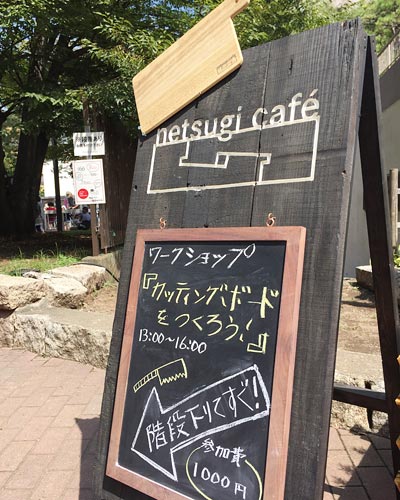 netsugi café
ワークショップ
『カッティングボード
をつくろう!』
13:00~16:00
階段下りてすぐ!
参加費
1000円